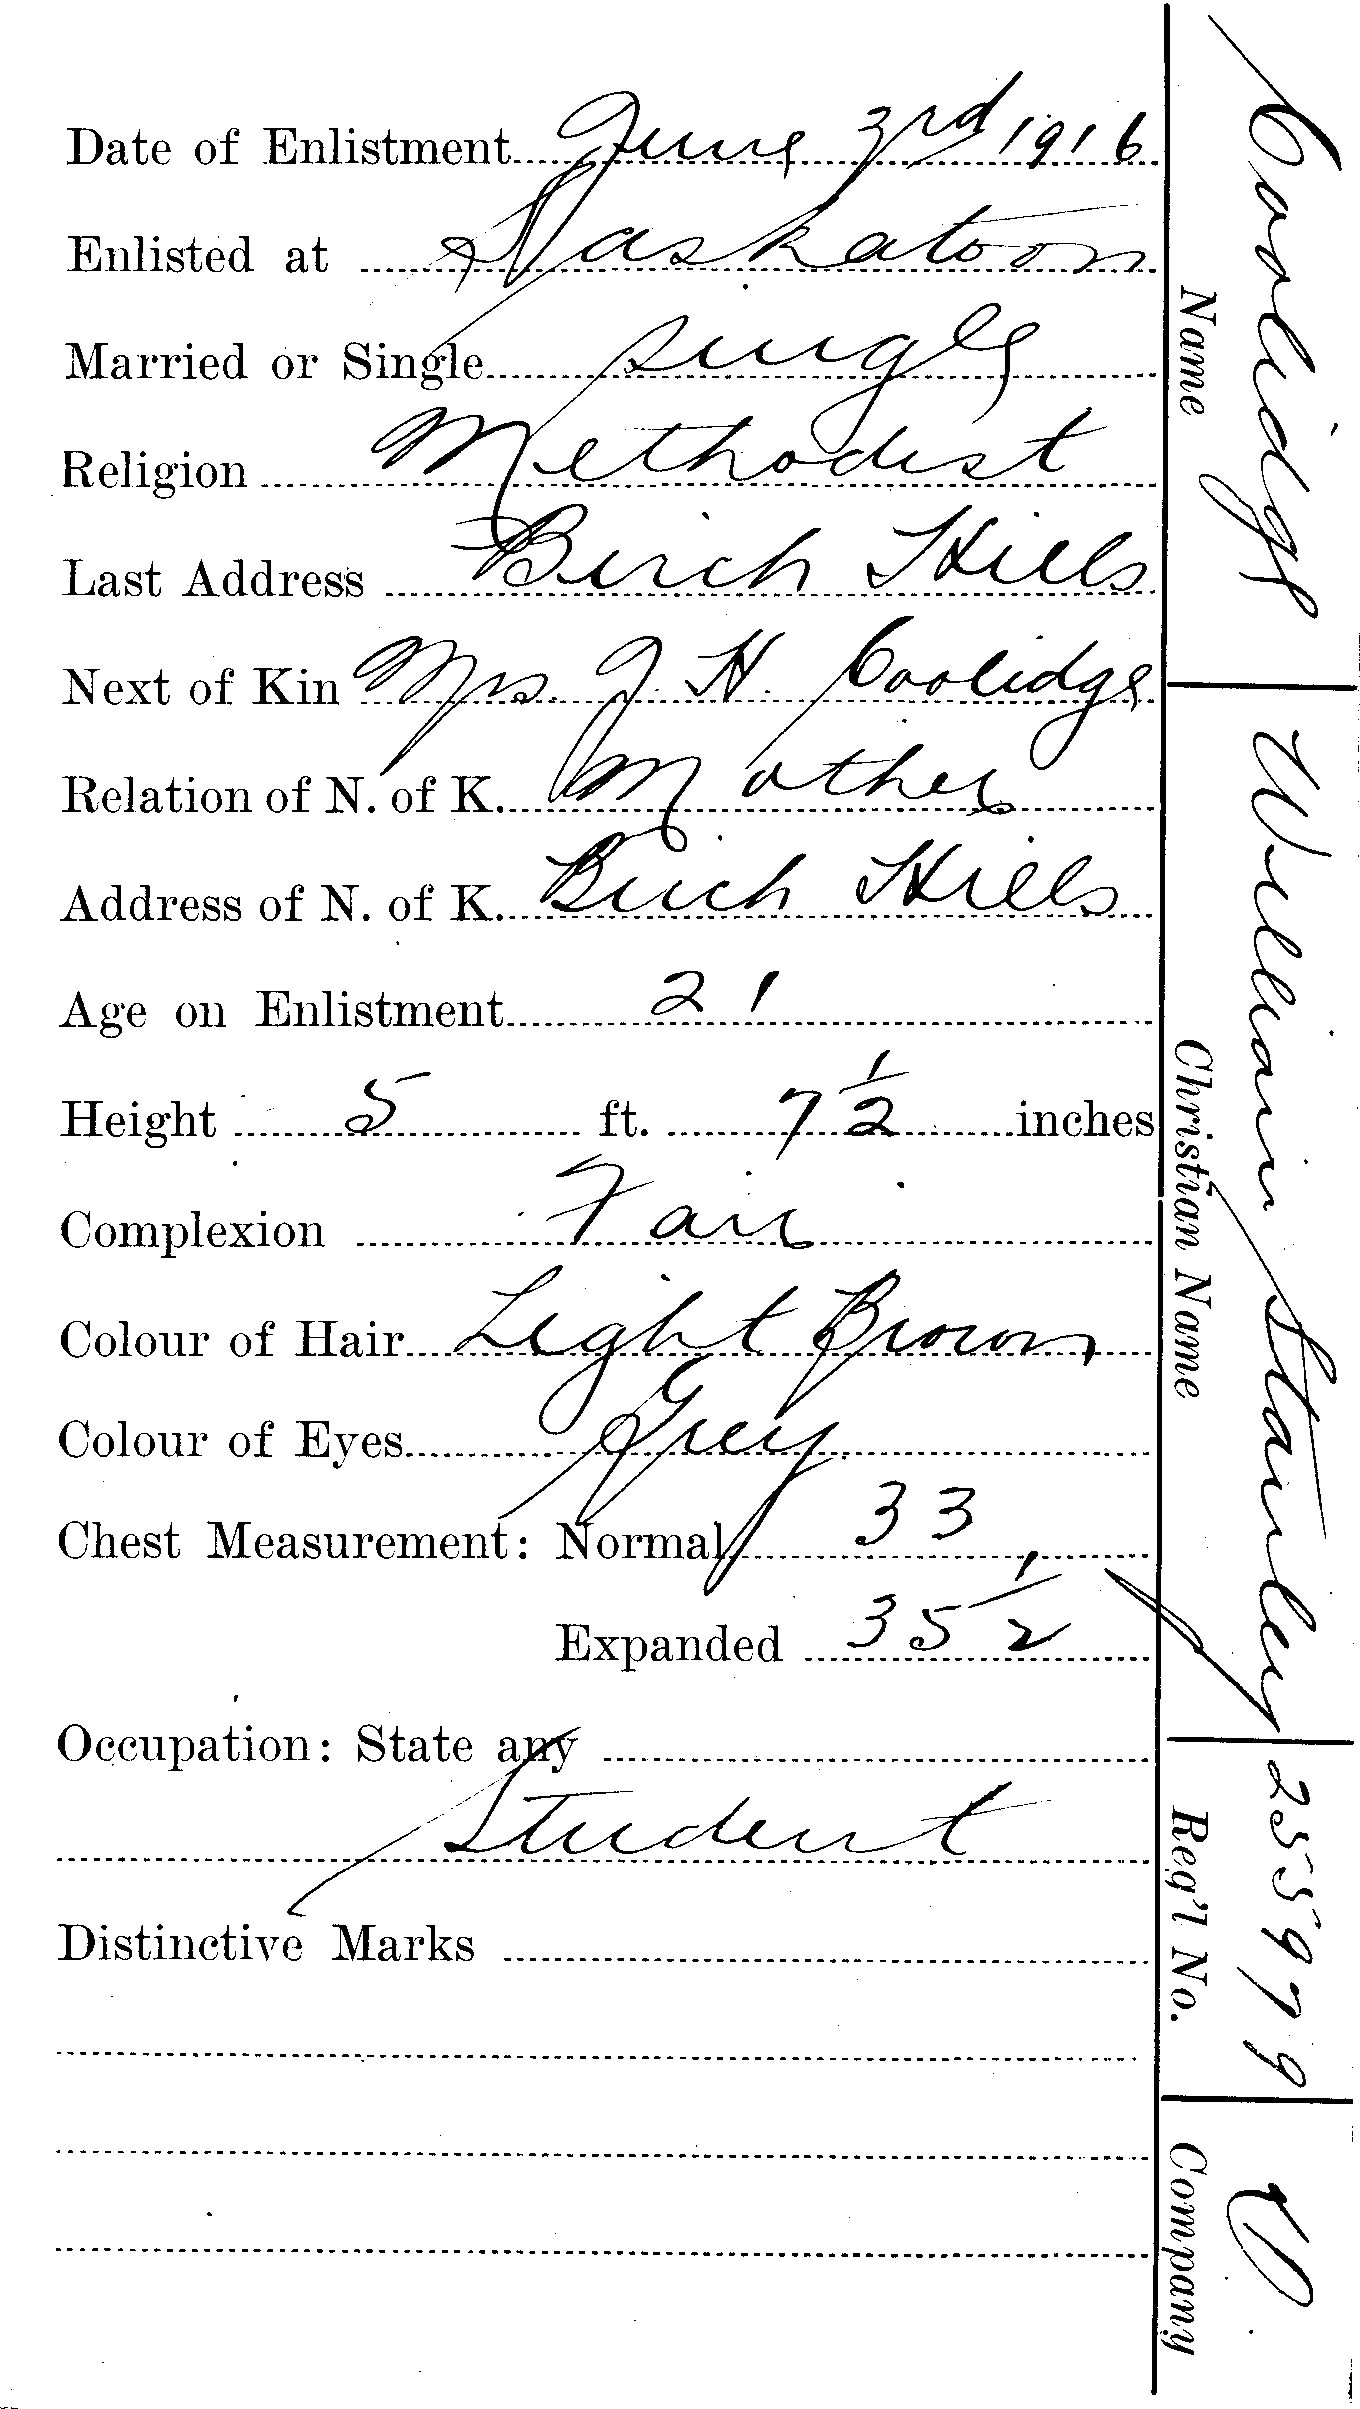 Date of Enlistment June 3rd 1916
Enlisted at Saskatoon
Married or Single Single
Religion Methodist
Last Address Birch Hills
Next of Kin Mrs. J. H. Coolidge
Relation of N. of K. Mother
Address of N. of K. Birch Hills
Age on Enlistment 21
Height 5 ft. 7 1/2 inches
Complexion Fair
Colour of Hair Light Brown
Colour of Eyes Grey
Chest Measurement: Normal 33
Expanded 35 1/2
Occupation: State any
Student
Distinctive Marks
Coolidge William Stanley 255979
Name Christian Name Reg'l No. Company